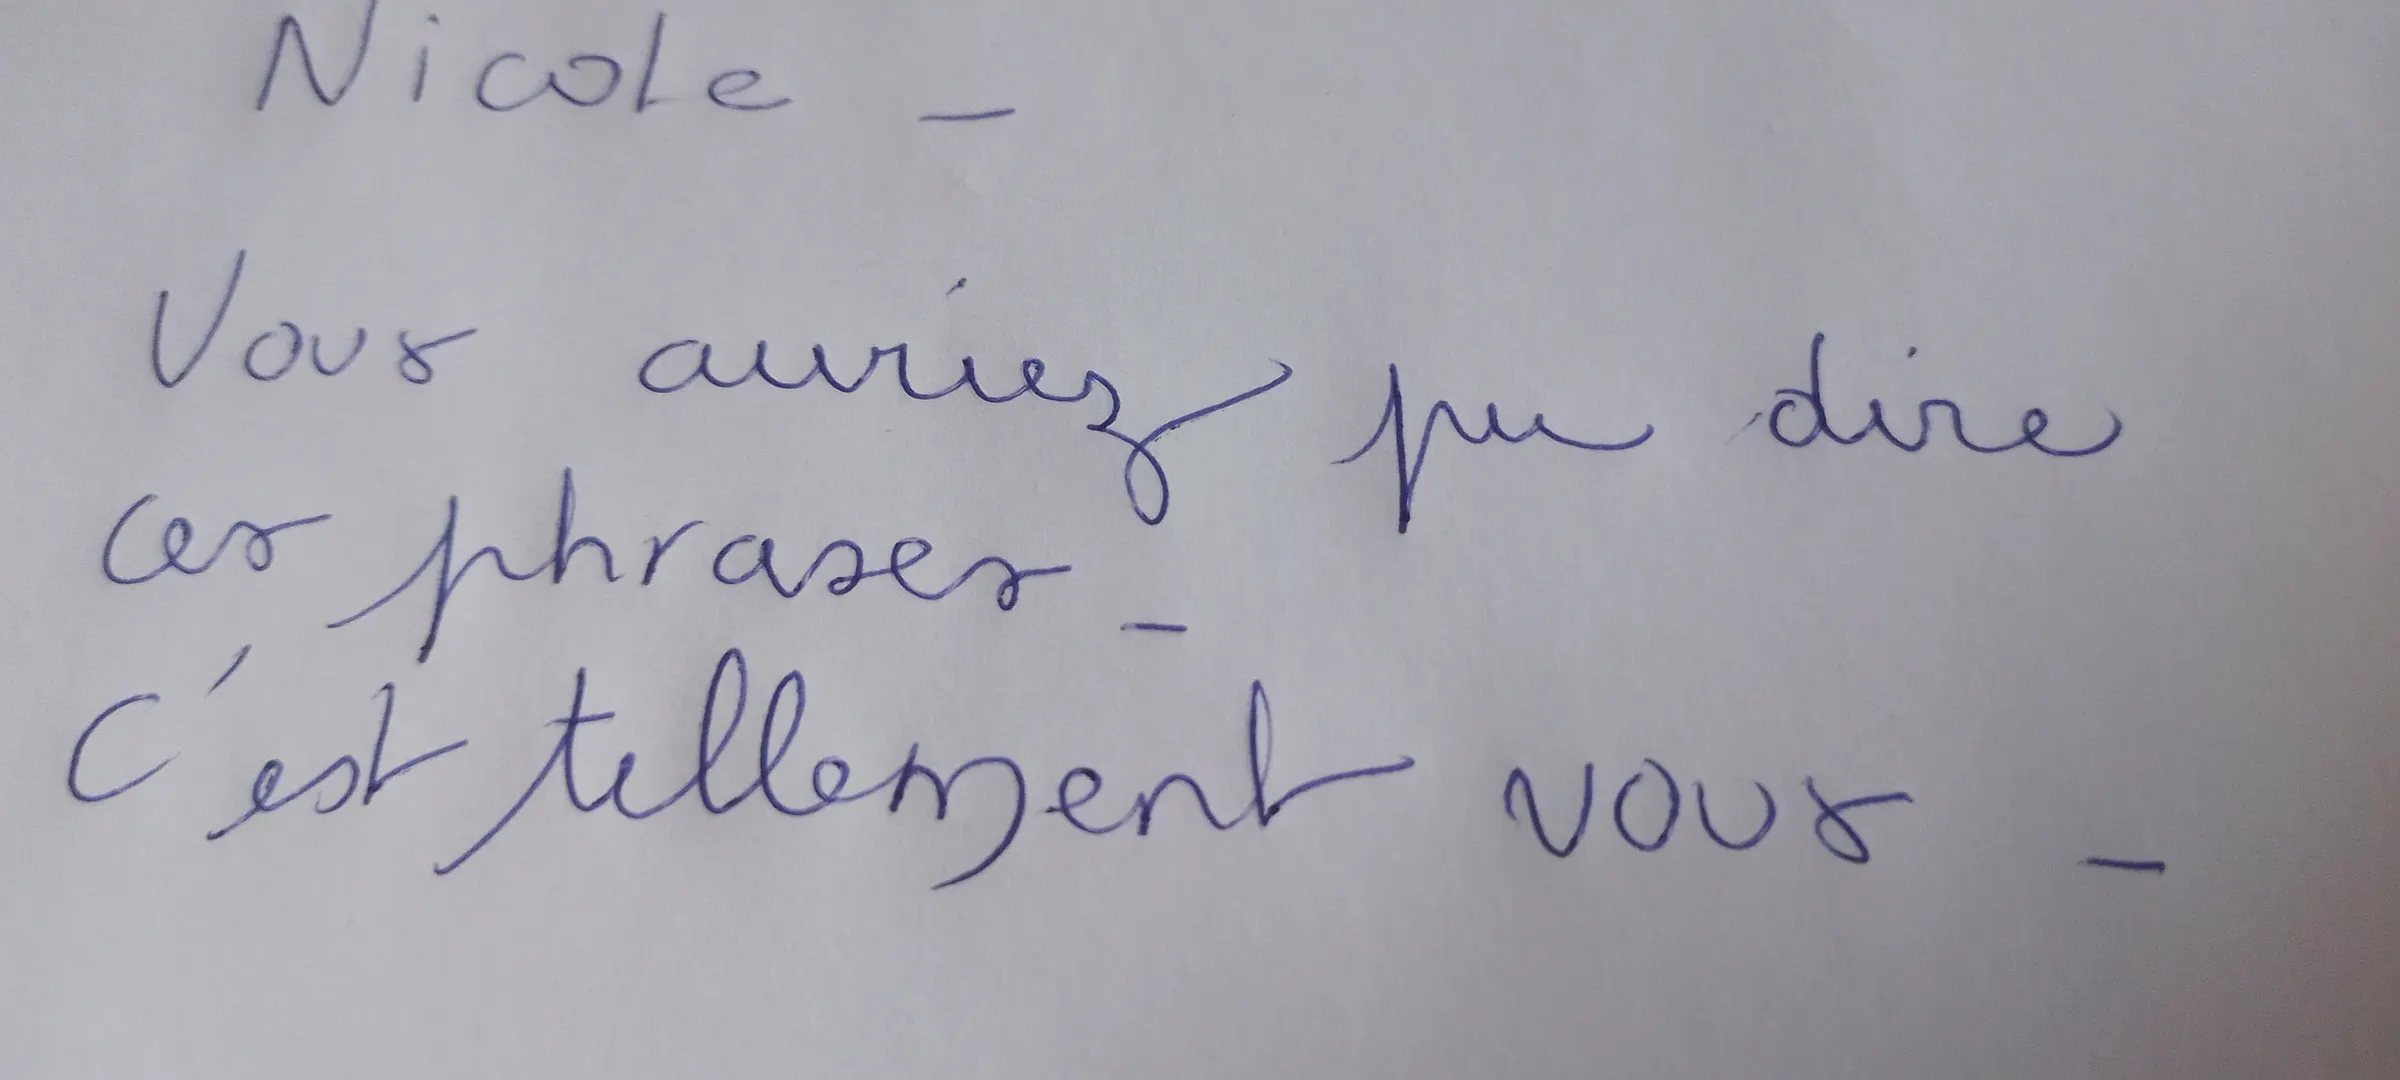 Nicole _
Vous auriez pu dire
ces phrases _
C'est tellement vous _